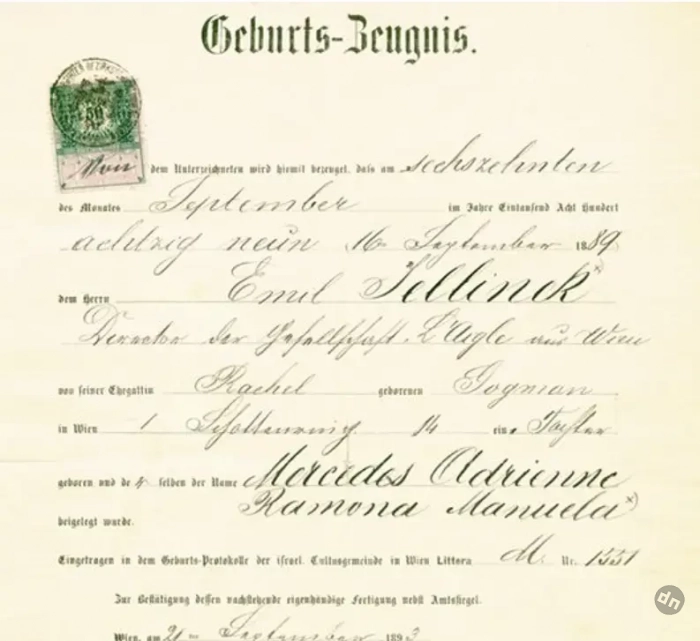 Geburts-Zeugnis.
50
Von dem Unterzeichneten wird hiemit bezeugt, dass am sechszehnten
des Monates September im Jahre Eintausend Acht Hundert
achtzig neun 16 September 1889
dem Herrn Emil Jellinek x)
Director der Gesellschaft L'Aigle aus Wien
von seiner Ehegattin Rachel geborenen Gogman
in Wien I Schottenring 14 eine Tochter
geboren und de r selben der Name Mercedes Adrienne
Ramona Manuela x)
beigelegt wurde.
Eingetragen in dem Geburts-Protokolle der israel. Cultusgemeinde in Wien Littera M. Nr. 1551
Zur Bestätigung dessen nachstehende eigenhändige Fertigung nebst Amtssiegel.
Wien, am 21 September 1893
dn